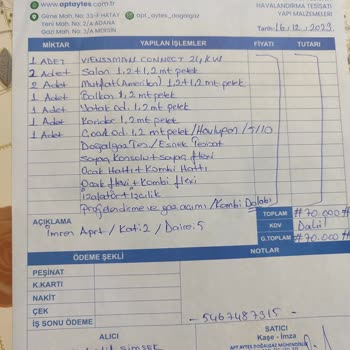 www.aptaytes.com.tr
HAVALANDIRMA TESİSATI
YAPI MALZEMELERİ
Girne Mah. No: 33-F HATAY
apt_aytes_dogalgaz
Yeni Mah. No: 2/4 ADANA
Gazi Mah. No: 3/4 MERSİN
Tarih: 16.12.2023
MİKTAR YAPILAN İŞLEMLER FİYATI TUTARI
1 ADET VIESSMANN CONNECT 24 KW
2 Adet Salon 1,2+1,2 mt petek
2 Adet Mutfak (Amerikan) 1,2+1,2 mt petek
1 Adet Balkon 1,2 mt petek
1 Adet Yatak od. 1,2 mt petek
1 Adet Koridor 1,2 mt petek
1 Adet Çocuk od. 1,2 mt petek / Havlupan / 7/10
Doğalgaz Tes / Esnek Tesisat
Sayaç Konsolu + sayaç flexi
Ocak Hattı + Kombi Hattı
Ocak flexi + Kombi flexi
İzolatör + İşçilik
Projelendirme ve gaz açımı / Kombi Dolabı
AÇIKLAMA
İmren Aprt / Kat: 2 / Daire: 5
TOPLAM #70.000#
KDV Dahil
G.TOPLAM #70.000#
ÖDEME ŞEKLİ NOTLAR
PEŞİNAT
K.KARTI
NAKİT
ÇEK
İŞ SONU ÖDEME
- 5467487315 -
ALICI
SATICI
Kaşe - İmza